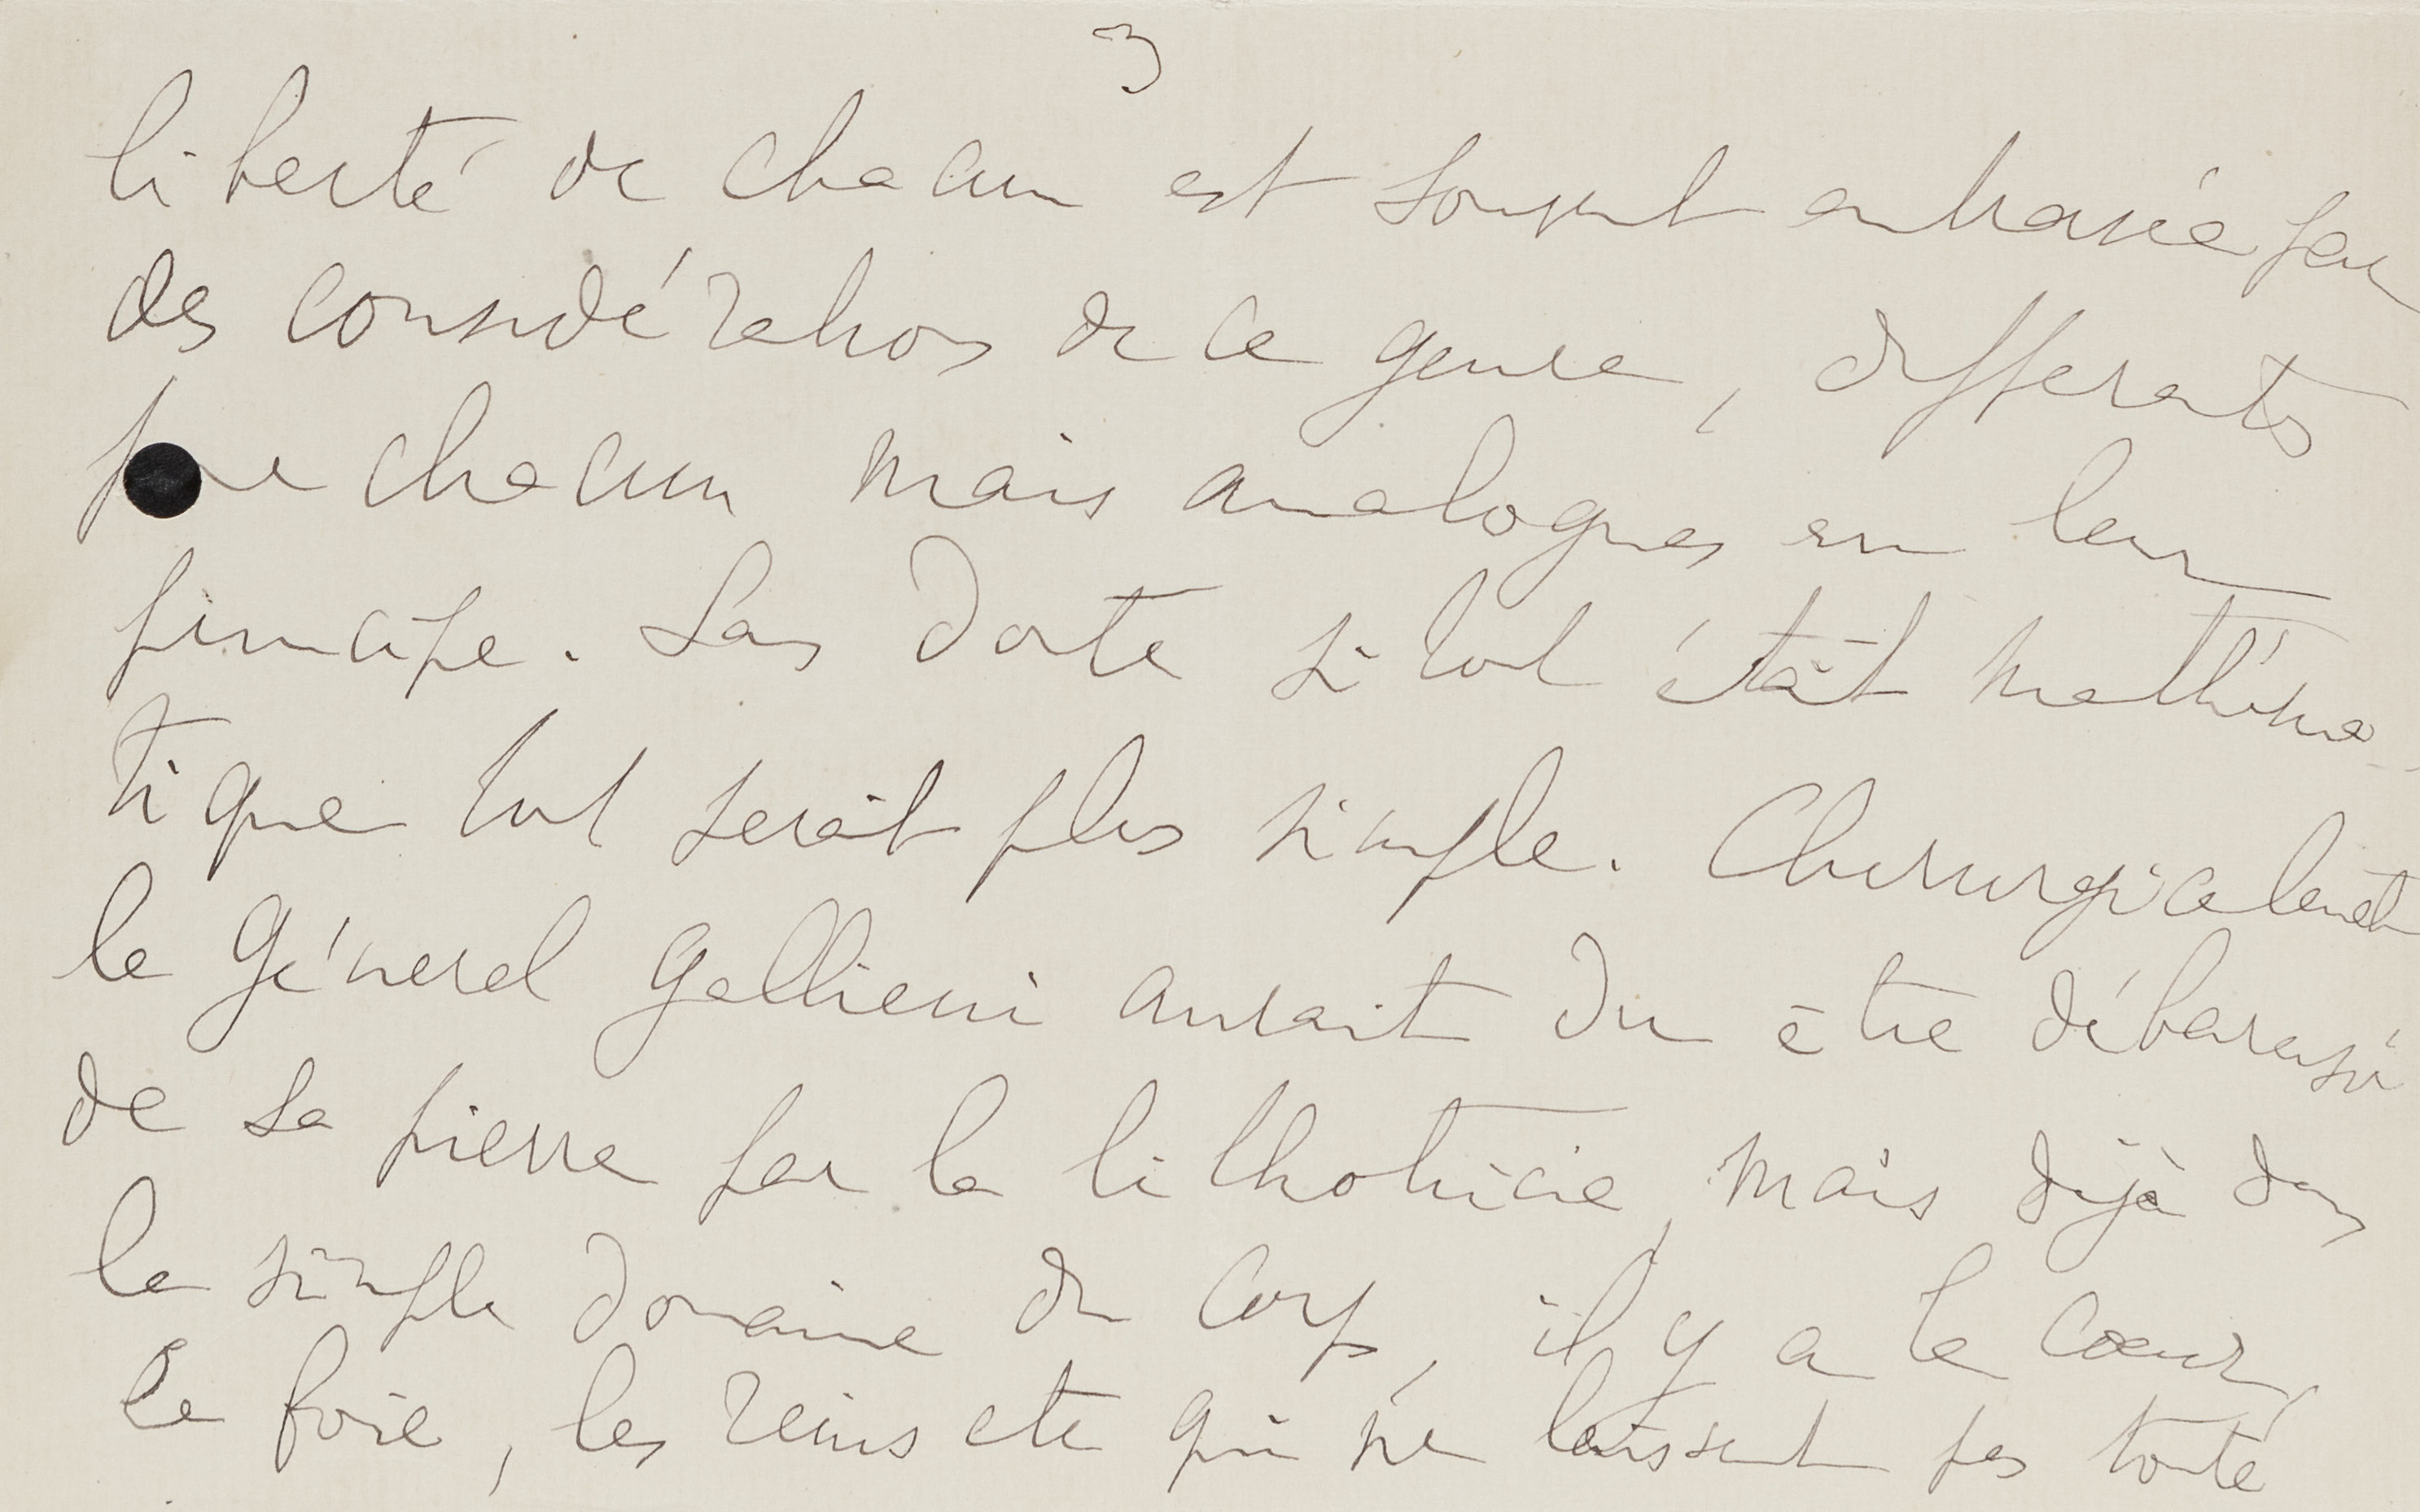 3
liberté de chacun est souvent entravée par
des considérations de ce genre, différents
pour chacun mais analogues en leur
principe. Sans doute si tout était mathéma-
tique tout serait plus simple. Chirurgicalement
le Général Gallieni aurait du être débarassé
de sa pierre par la lithotricie, mais déjà dans
le simple domaine du corps, il y a le cœur,
le foie, les reins etc qui ne laissent pas toute